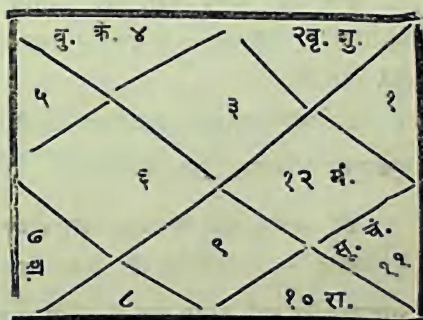 बु. के. ४
२वृ. शु.
५
३
१
६
१२ मं.
७
श.
९
सू. चं.
११
८
१० रा.